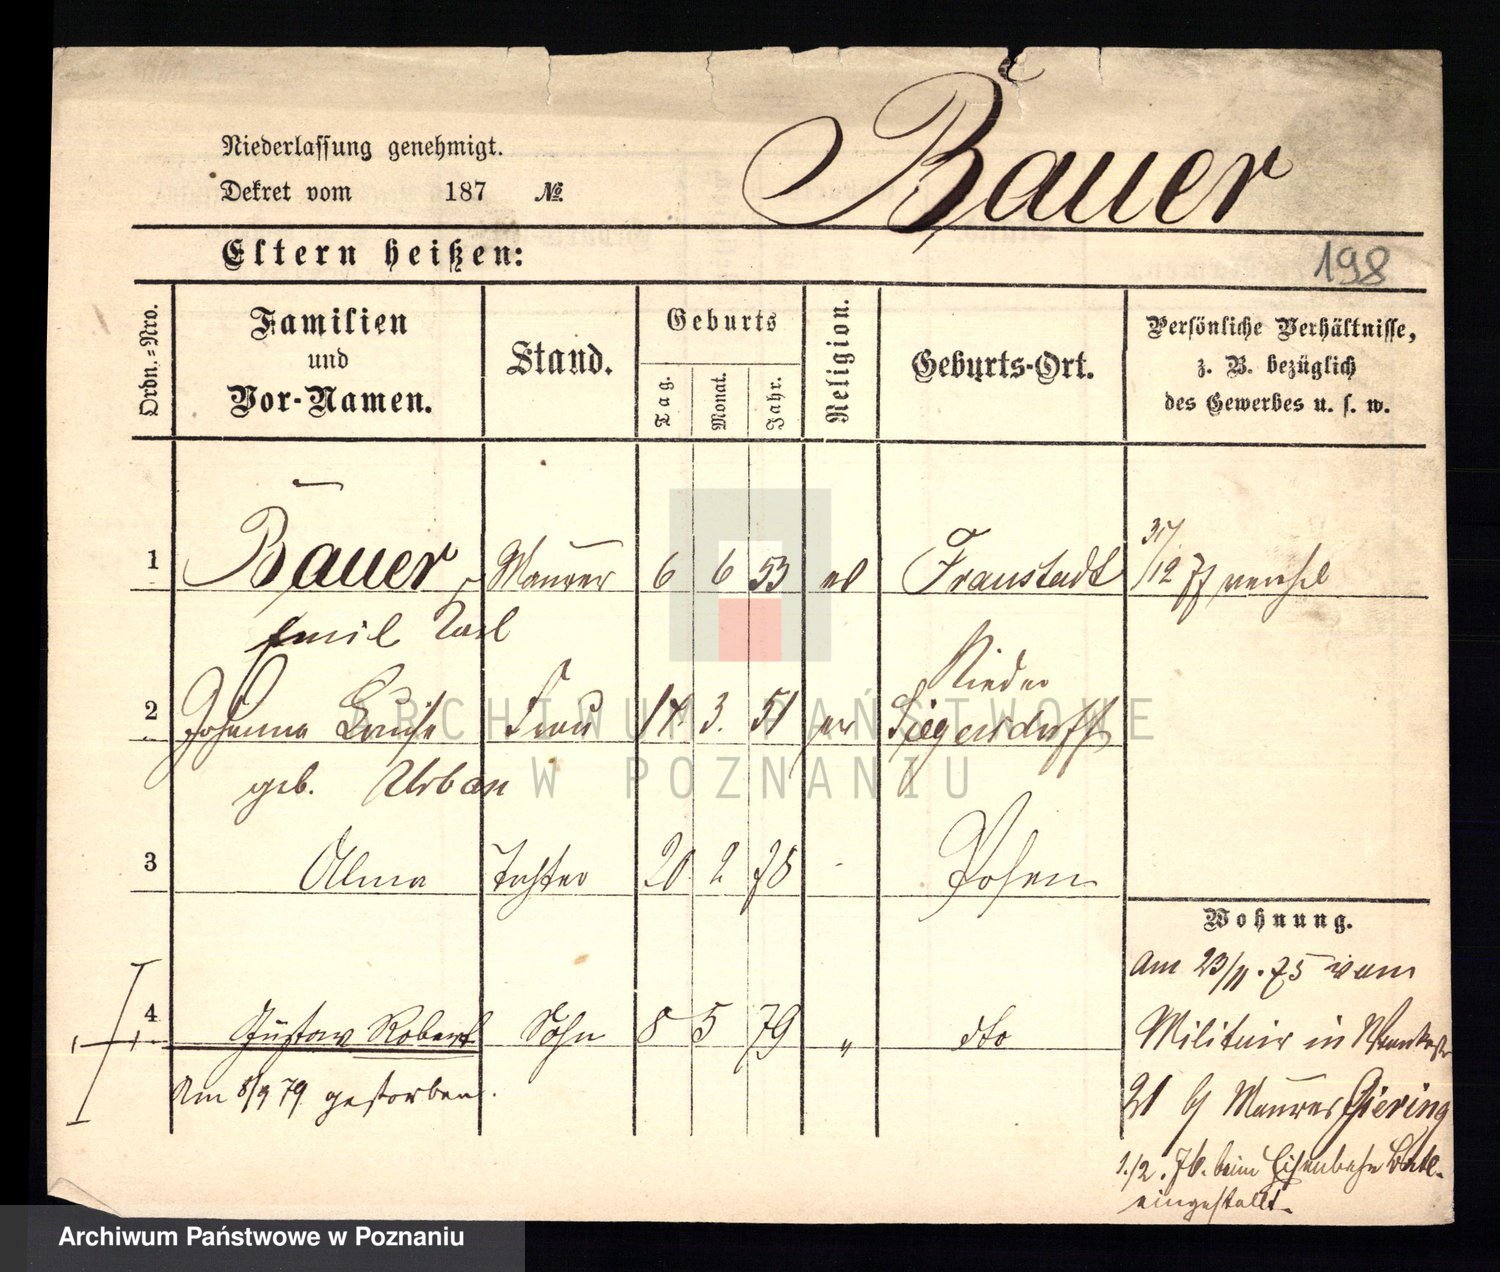 Bauer
Niederlassung genehmigt.
Dekret vom 187 №.
Eltern heißen:
198
Ordn.=Nro.
Familien
und
Vor-Namen.
Stand.
Geburts
Tag.
Monat.
Jahr.
Religion.
Geburts-Ort.
Persönliche Verhältnisse,
z. B. bezüglich
des Gewerbes u. s. w.
1 Bauer, Maurer 6 6 53 Fraustadt 31/12 77
Emil Carl
Nieder
2 Johanna Louise Frau 14 3. 51 Siegersdorff
geb. Urban
3 Alma Tochter 20. 2 78 Posen
4 Gustav Robert Sohn 8 5 79 " dto
Am 8/9 79 gestorben.
Wohnung.
Am 23/11. 75 vom
Militair in
21 b/ Maurer Giering
1./2. 76. beim Eisenbahn Batl.
eingestellt.
ARCHIWUM PAŃSTWOWE
W POZNANIU
Archiwum Państwowe w Poznaniu